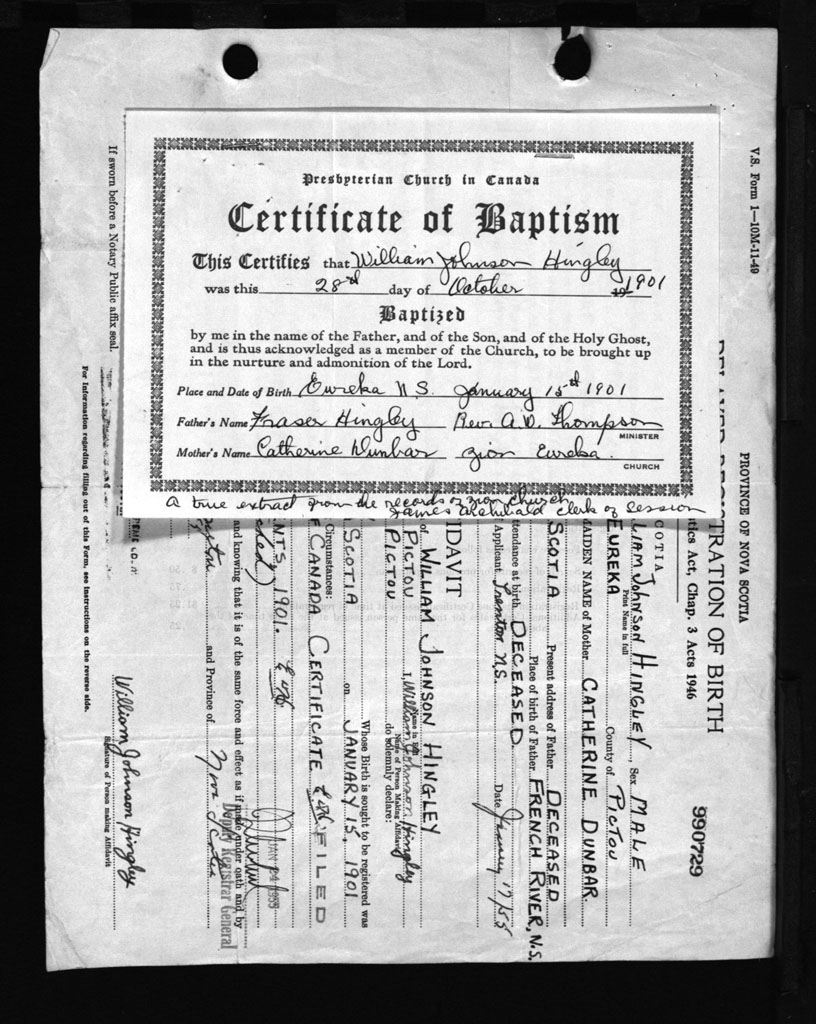 Presbyterian Church in Canada
Certificate of Baptism
This Certifies that William Johnson Hingley
was this 28rd day of October 19 1901
Baptized
by me in the name of the Father, and of the Son, and of the Holy Ghost,
and is thus acknowledged as a member of the Church, to be brought up
in the nurture and admonition of the Lord.
Place and Date of Birth Eureka N.S. January 15th 1901
Father's Name Fraser Hingley Rev. A. D. Thompson
MINISTER
Mother's Name Catherine Dunbar Zion Eureka.
CHURCH
A true extract from the records of Zion Church,
James Archibald clerk of session
V.S. Form 1—10M-11-49
PROVINCE OF NOVA SCOTIA
990729
DELAYED REGISTRATION OF BIRTH
tics Act, Chap. 3 Acts 1946
COTIA
LIAM JOHNSON HINGLEY Sex MALE
Print Name in full
EUREKA County of PICTOU
MAIDEN NAME of Mother CATHERINE DUNBAR.
SCOTIA Present address of Father DECEASED
Place of birth of Father FRENCH RIVER, N.S.
ttendance at birth DECEASED.
Applicant Trenton N.S. Date January 17/55
IDAVIT
of WILLIAM JOHNSON HINGLEY
Name in full
PICTOU I, William Johnson Hingley
Name of Person Making Affidavit
PICTOU do solemnly declare:
Whose Birth is sought to be registered was
SCOTIA on JANUARY 15, 1901
Circumstances:
F CANADA CERTIFICATE FILED
NTS 1901.
JAN 24 1955
and knowing that it is of the same force and effect as if made under oath and by
Deputy Registrar General
and Province of Nova Scotia
William Johnson Hingley
Signature of Person making Affidavit
For Information regarding filling out of this Form, see instructions on the reverse side.
If sworn before a Notary Public affix seal.